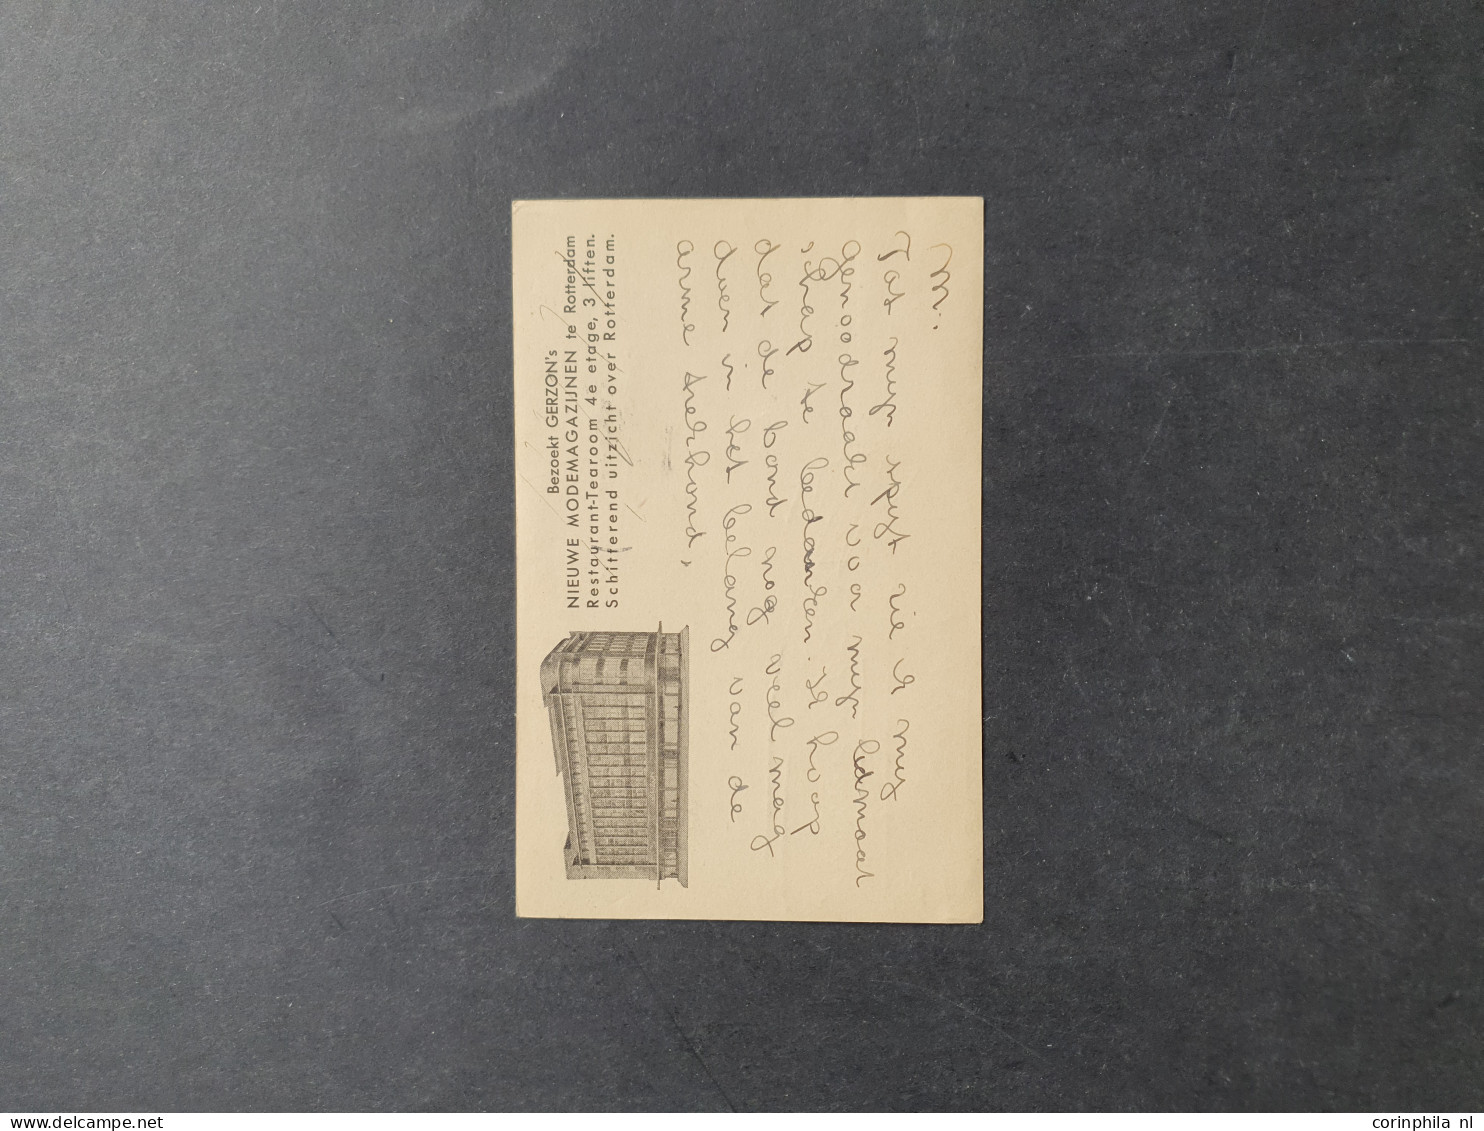 Bezoekt GERZON's
NIEUWE MODEMAGAZIJNEN te Rotterdam
Restaurant-Tearoom 4e etage, 3 liften.
Schitterend uitzicht over Rotterdam.
M.
Tot mijn spijt zie ik mij
genoodzaakt voor mijn lidmaat
schap te bedanken. Ik hoop
dat de bond nog veel mag
doen in het belang van de
arme trekhond,
corinphila nl